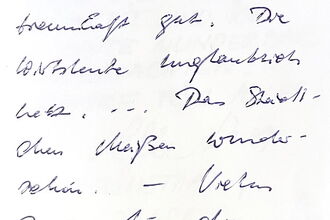 traumhaft gut. Die
Wirtsleute unglaublich
nett. ... Das Städt-
chen Meißen wunder-
schön. – Vielen